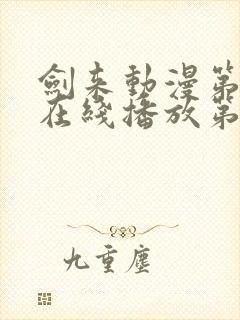 劍来動漫第
在綫播放第
九重塵